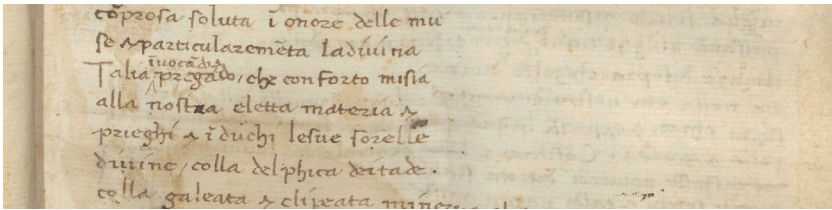 cō prosa soluta ī onore delle mu
se & particularemēta la divina
īvocādo &
Talia pregādo, che conforto mi sia
alla nostra eletta materia &
prieghi & īduchi le sue sorelle
divine, colla delphica deitade.
colla galeata & clipeata